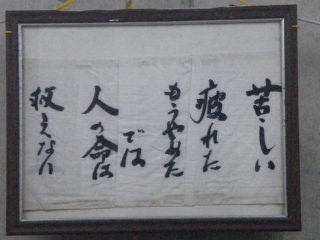 苦しい
疲れた
もうやめた
では
人の命は
救えない